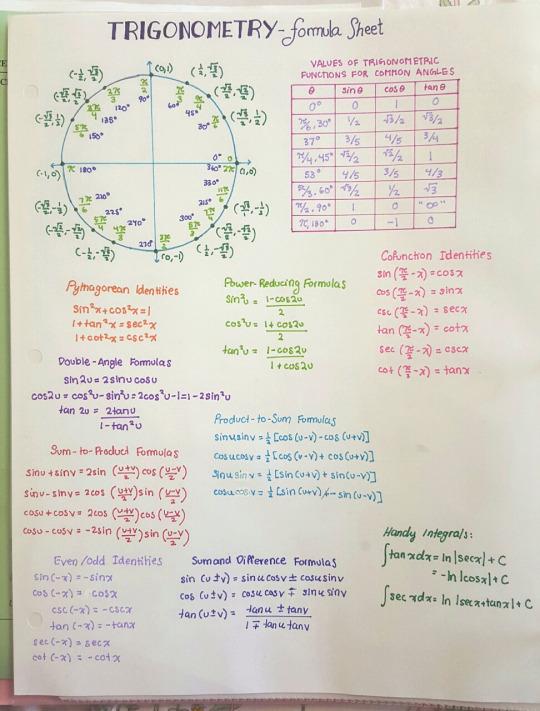 TRIGONOMETRY - formula Sheet
(0,1)
(-1/2, √3/2)
(-√2/2, √2/2)
(-√3/2, 1/2)
(1/2, √3/2)
(√2/2, √2/2)
(√3/2, 1/2)
π/2 90°
2π/3 120°
135°
5π/6 150°
60°
45°
30° π/6
(-1,0) π 180°
0° 0
360° 2π (1,0)
7π/6 210°
5π/4 225°
4π/3 240°
270° 3π/2
300° 5π/3
315° 7π/4
330° 11π/6
(-√2/2, -√2/2)
(-1/2, -√3/2)
(0,-1)
(1/2, -√3/2)
VALUES OF TRIGONOMETRIC
FUNCTIONS FOR COMMON ANGLES
θ sinθ cosθ tanθ
0° 0 1 0
π/6, 30° 1/2 √3/2 √3/2
37° 3/5 4/5 3/4
π/4, 45° √2/2 √2/2 1
53° 4/5 3/5 4/3
60° √3/2 1/2 √3
π/2, 90° 1 0 "∞"
π, 180° 0 -1 0
Cofunction Identities
sin(π/2 - x) = cosx
cos(π/2 - x) = sinx
csc(π/2 - x) = secx
tan(π/2 - x) = cotx
sec(π/2 - x) = cscx
cot(π/2 - x) = tanx
Pythagorean Identities
sin²x + cos²x = 1
1 + tan²x = sec²x
1 + cot²x = csc²x
Power-Reducing Formulas
sin²u = 1-cos2u / 2
cos²u = 1+cos2u / 2
tan²u = 1-cos2u / 1+cos2u
Double-Angle Formulas
sin2u = 2sinu cosu
cos2u = cos²u - sin²u = 2cos²u - 1 = 1 - 2sin²u
tan 2u = 2tanu / 1-tan²u
Product-to-Sum Formulas
sinusinv = ½ [cos(u-v) - cos(u+v)]
cosucosv = ½ [cos(u-v) + cos(u+v)]
sinucosv = ½ [sin(u+v) + sin(u-v)]
cosu = ½ [sin(u+v) - sin(u-v)]
Sum-to-Product Formulas
sinu + sinv = 2sin (u+v/2) cos (u-v/2)
sinu - sinv = 2cos (u+v/2) sin (u-v/2)
cosu + cosv = 2cos (u+v/2) cos (u-v/2)
cosu - cosv = -2sin (u+v/2) sin (u-v/2)
Handy Integrals:
∫tanxdx = ln|secx| + C
= -ln|cosx| + C
∫secxdx = ln|secx+tanx| + C
Even/odd Identities
sin(-x) = -sinx
cos(-x) = cosx
csc(-x) = -cscx
tan(-x) = -tanx
sec(-x) = secx
cot(-x) = -cotx
Sum and Difference Formulas
sin (u±v) = sinu cosv ± cosu sinv
cos (u±v) = cosu cosv ∓ sinu sinv
tan (u±v) = tanu ± tanv / 1 ∓ tanu tanv